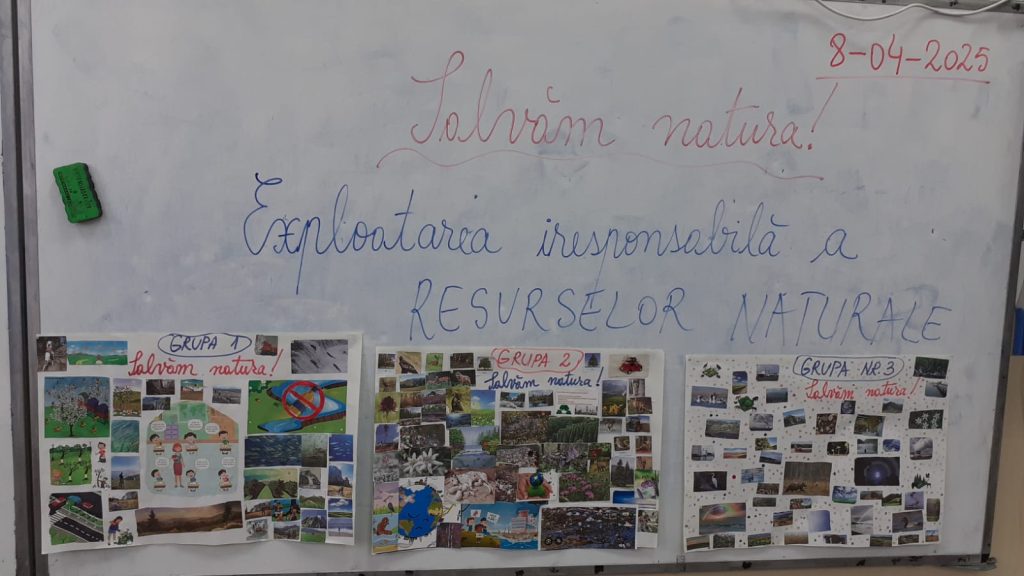 8-04-2025
Salvăm natura!
Exploatarea iresponsabilă a
RESURSELOR NATURALE
GRUPA 1
Salvăm natura!
GRUPA 2
Salvăm natura!
GRUPA NR.3
Salvăm natura!